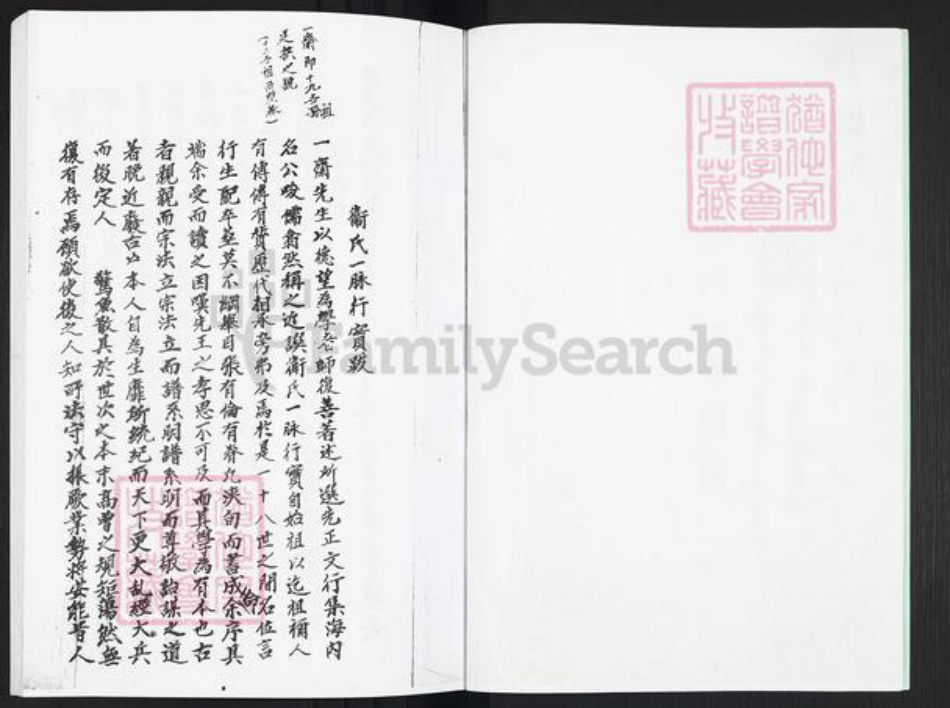 一齋即十九世祖
是族之號
衞氏一脉行實跋
一齋先生以德望為學老師復善著述所選先正文行集海內
名公皆翕然稱之近譔衞氏一脉行實自始祖以迄祖禰人
有傳傳有贊歷代相承旁弟及焉於是一十八世之間名位言
行生配卒塟莫不綱舉目張有倫有脊九浹旬而書成余序其
端余受而讀之因嘆先王之孝思不可及而其學為有本也古
者親親而宗法立宗法立而譜系明譜系明而尊敬貽謀之道
著晚近廢古本人自為生靡所統紀而天下更大亂經大兵
而後定人驚魚散其於世次之本末高曾之規矩蕩然無
復有存焉願欲使後之人知所法守以振厥業勢將安能昔人
猶他家譜學會收藏
FamilySearch